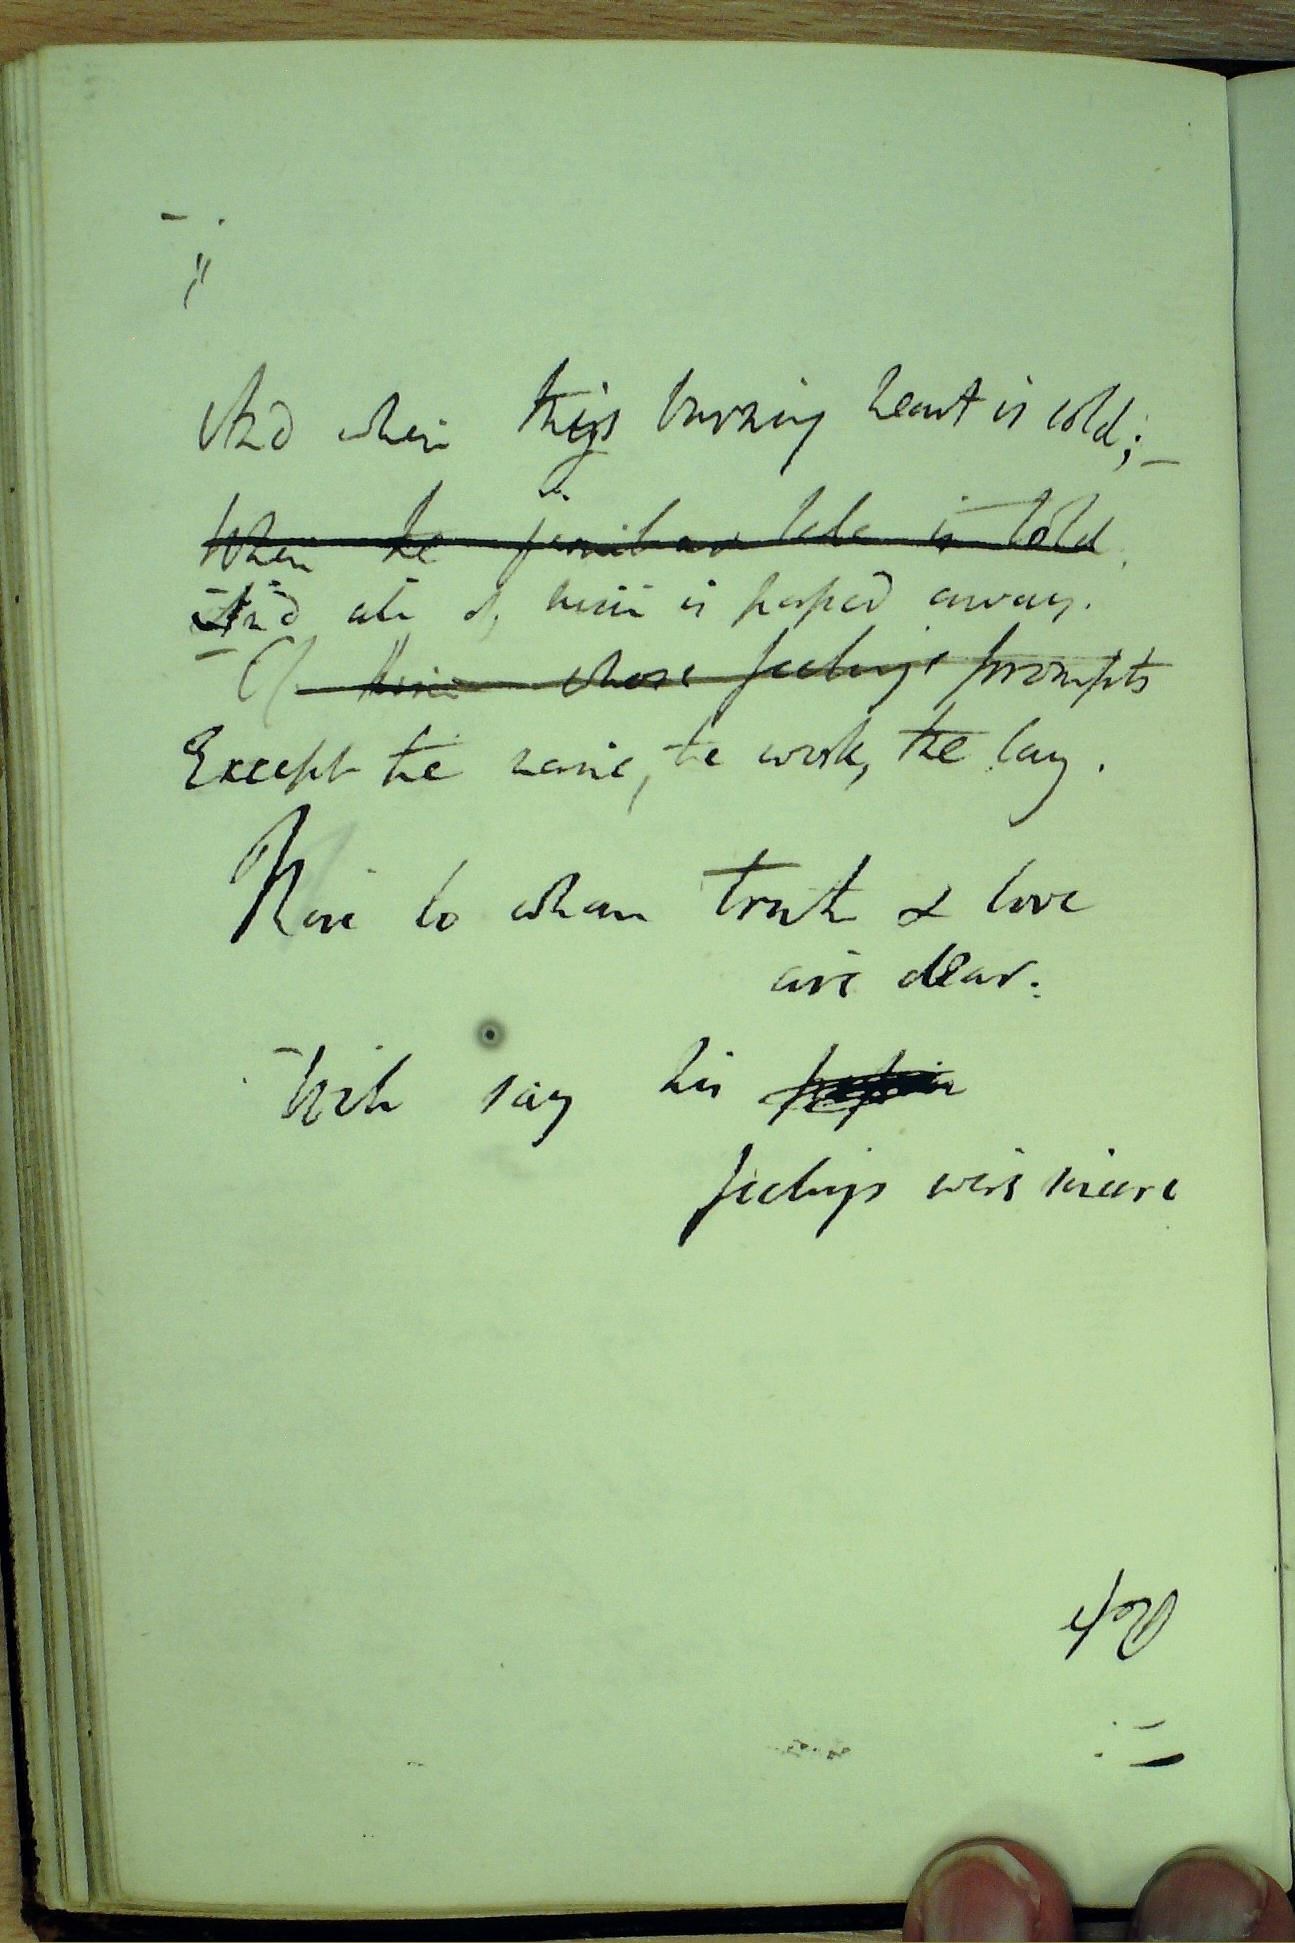 And when this burning heart is cold;—
When the familiar tale is told
And all of mine is passed away.
Of those whose feelings prompts
Except the name, the work, the lay.
Now to whom truth & love
are dear.
Will say his
feelings were sincere